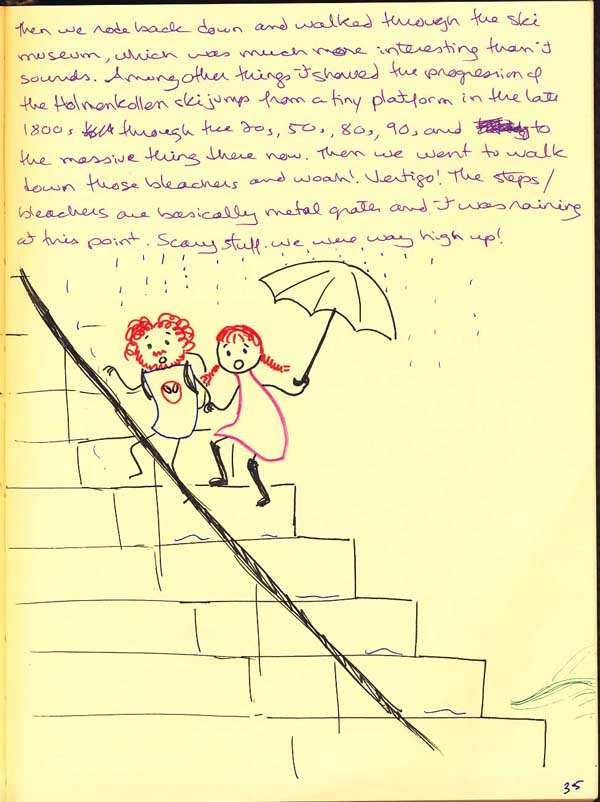 Then we rode back down and walked through the ski
museum, which was much more interesting than it
sounds. Among other things it showed the progression of
the Holmenkollen ski jumps from a tiny platform in the late
1800s through the 20s, 50s, 80s, 90s, and to
the massive thing there now. Then we went to walk
down those bleachers and woah! Vertigo! The steps/
bleachers are basically metal grates and it was raining
at this point. Scary stuff. We were way high up!
35